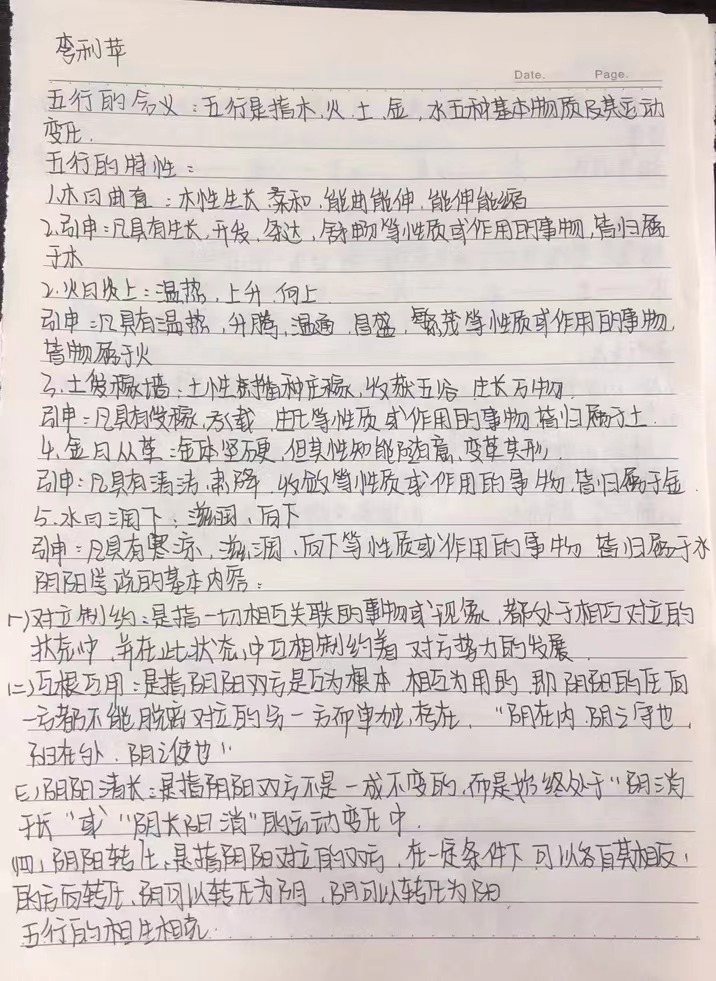 弯利苹
Date. Page.
五行的含义：五行是指木、火、土、金、水五种基本物质及其运动
变化.
五行的特性：
1.木曰曲直：木性生长、柔和、能曲能伸、能伸能缩
2.引申：凡具有生长、升发、条达、舒畅等性质或作用的事物，皆归属
于木
2.火曰炎上：温热、上升、向上
引申：凡具有温热、升腾、温通、昌盛、繁茂等性质或作用的事物，
皆物属于火
3.土爰稼墙：土性 播种庄稼，收获五谷 生长万物.
引申：凡具有 稼、承载、生化等性质或作用的事物皆归属于土.
4.金曰从革：金体坚硬，但其性知能随意，变革其形.
引申：凡具有清洁、肃降、收敛等性质或作用的事物，皆归属于金.
5.水曰润下：滋润、向下
引申：凡具有寒凉、滋润、向下等性质或作用的事物 皆归属于水
阴阳学说的基本内容：
(一)对立制约：是指一切相互关联的事物或现象，都处于相互对立的
状态中，并在此状态中互相制约着对方势力的发展
(二)互根互用：是指阴阳双方是互为根本，相互为用的，即阴阳的任何
一方都不能脱离对立的另一方而单独存在，“阴在内，阴之守也，
阳在外，阴之使也”
(三)阴阳消长：是指阴阳双方不是一成不变的，而是始终处于“阴消
于长”或“阴长阳消”的运动变化中.
(四)阴阳转化：是指阴阳对立的双方，在一定条件下可以各自其相反
的方而转化，阴可以转化为阴，阴可以转化为阳
五行的相生相克.